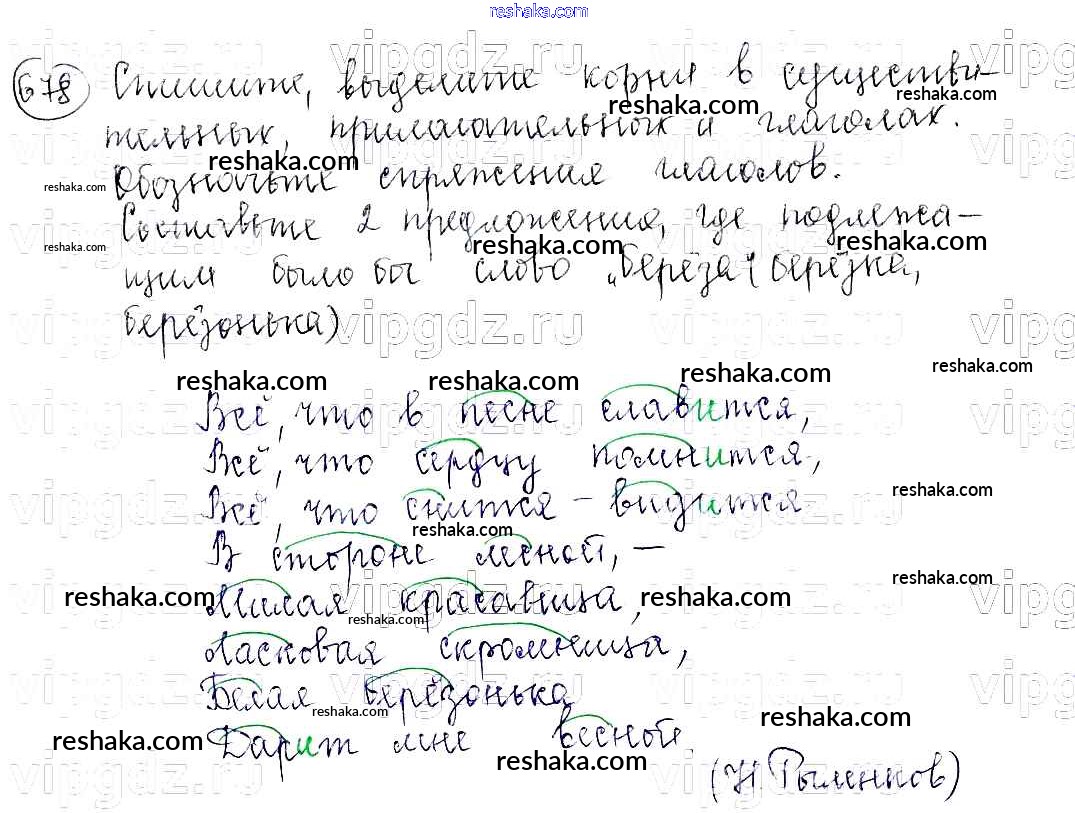 reshaka.com
678 Спишите, выделите корни в существи-
тельных, прилагательных и глаголах.
Обозначьте спряжения глаголов.
Составьте 2 предложения, где подлежа-
щим было бы слово „берёза“ (берёзка,
берёзонька)
Всё, что в песне славится,
Всё, что сердцу помнится,
Всё, что снится – видится
В стороне лесной, –
Милая красавица,
Ласковая скромница,
Белая берёзонька
Дарит мне весной.
(Н. Рыленков)